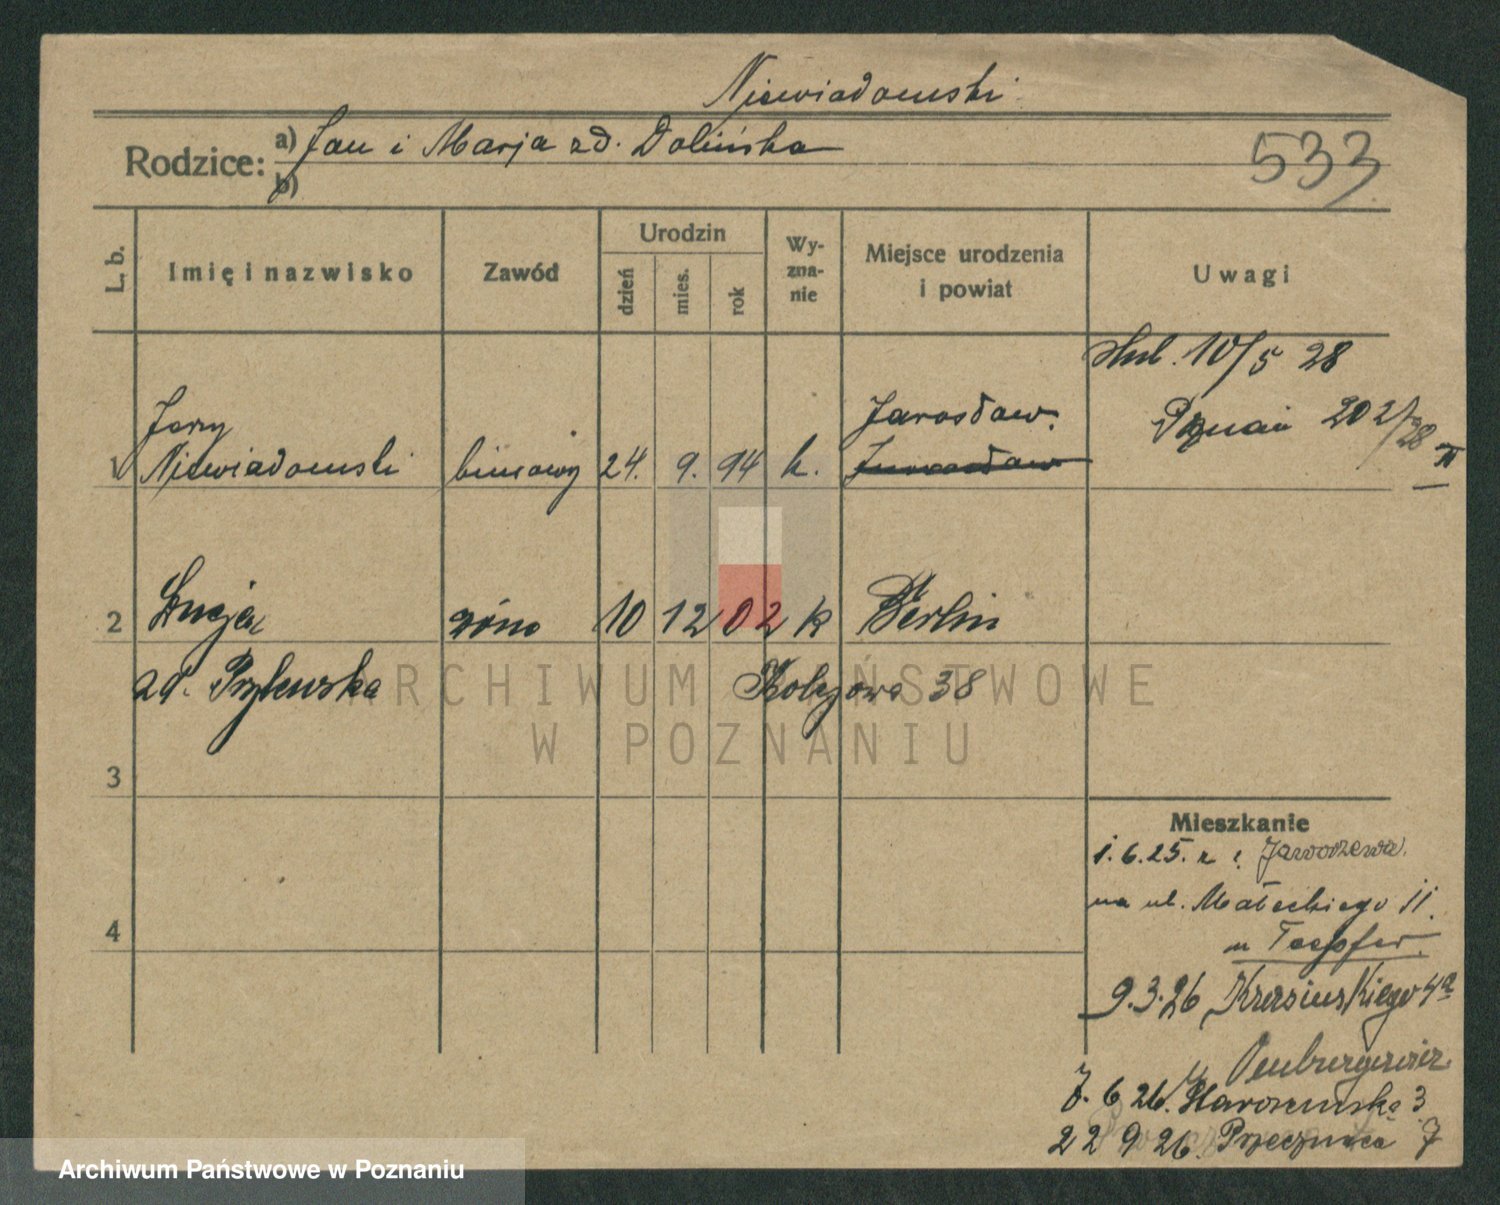 Niewiadomski
Rodzice: a) Jan i Marja zd. Dolińska
b)
533
L. b.
Imię i nazwisko
Zawód
Urodzin
dzień
mies.
rok
Wy-
zna-
nie
Miejsce urodzenia
i powiat
Uwagi
10/5 28
Poznań 202/28 II
Jerzy
1 Niewiadomski biurowy 24. 9. 94 k. Jarosław.
2 Łucja żona 10 12 02 k Berlin
zd. 38
3
4
Mieszkanie
1.6.25. z Jaworzewa.
na ul. Małeckiego 11.
u Toepfer.
9.3.26 4a
7. 6 26. 3
22 9 26. Przecznica 7
ARCHIWUM PAŃSTWOWE
W POZNANIU
Archiwum Państwowe w Poznaniu